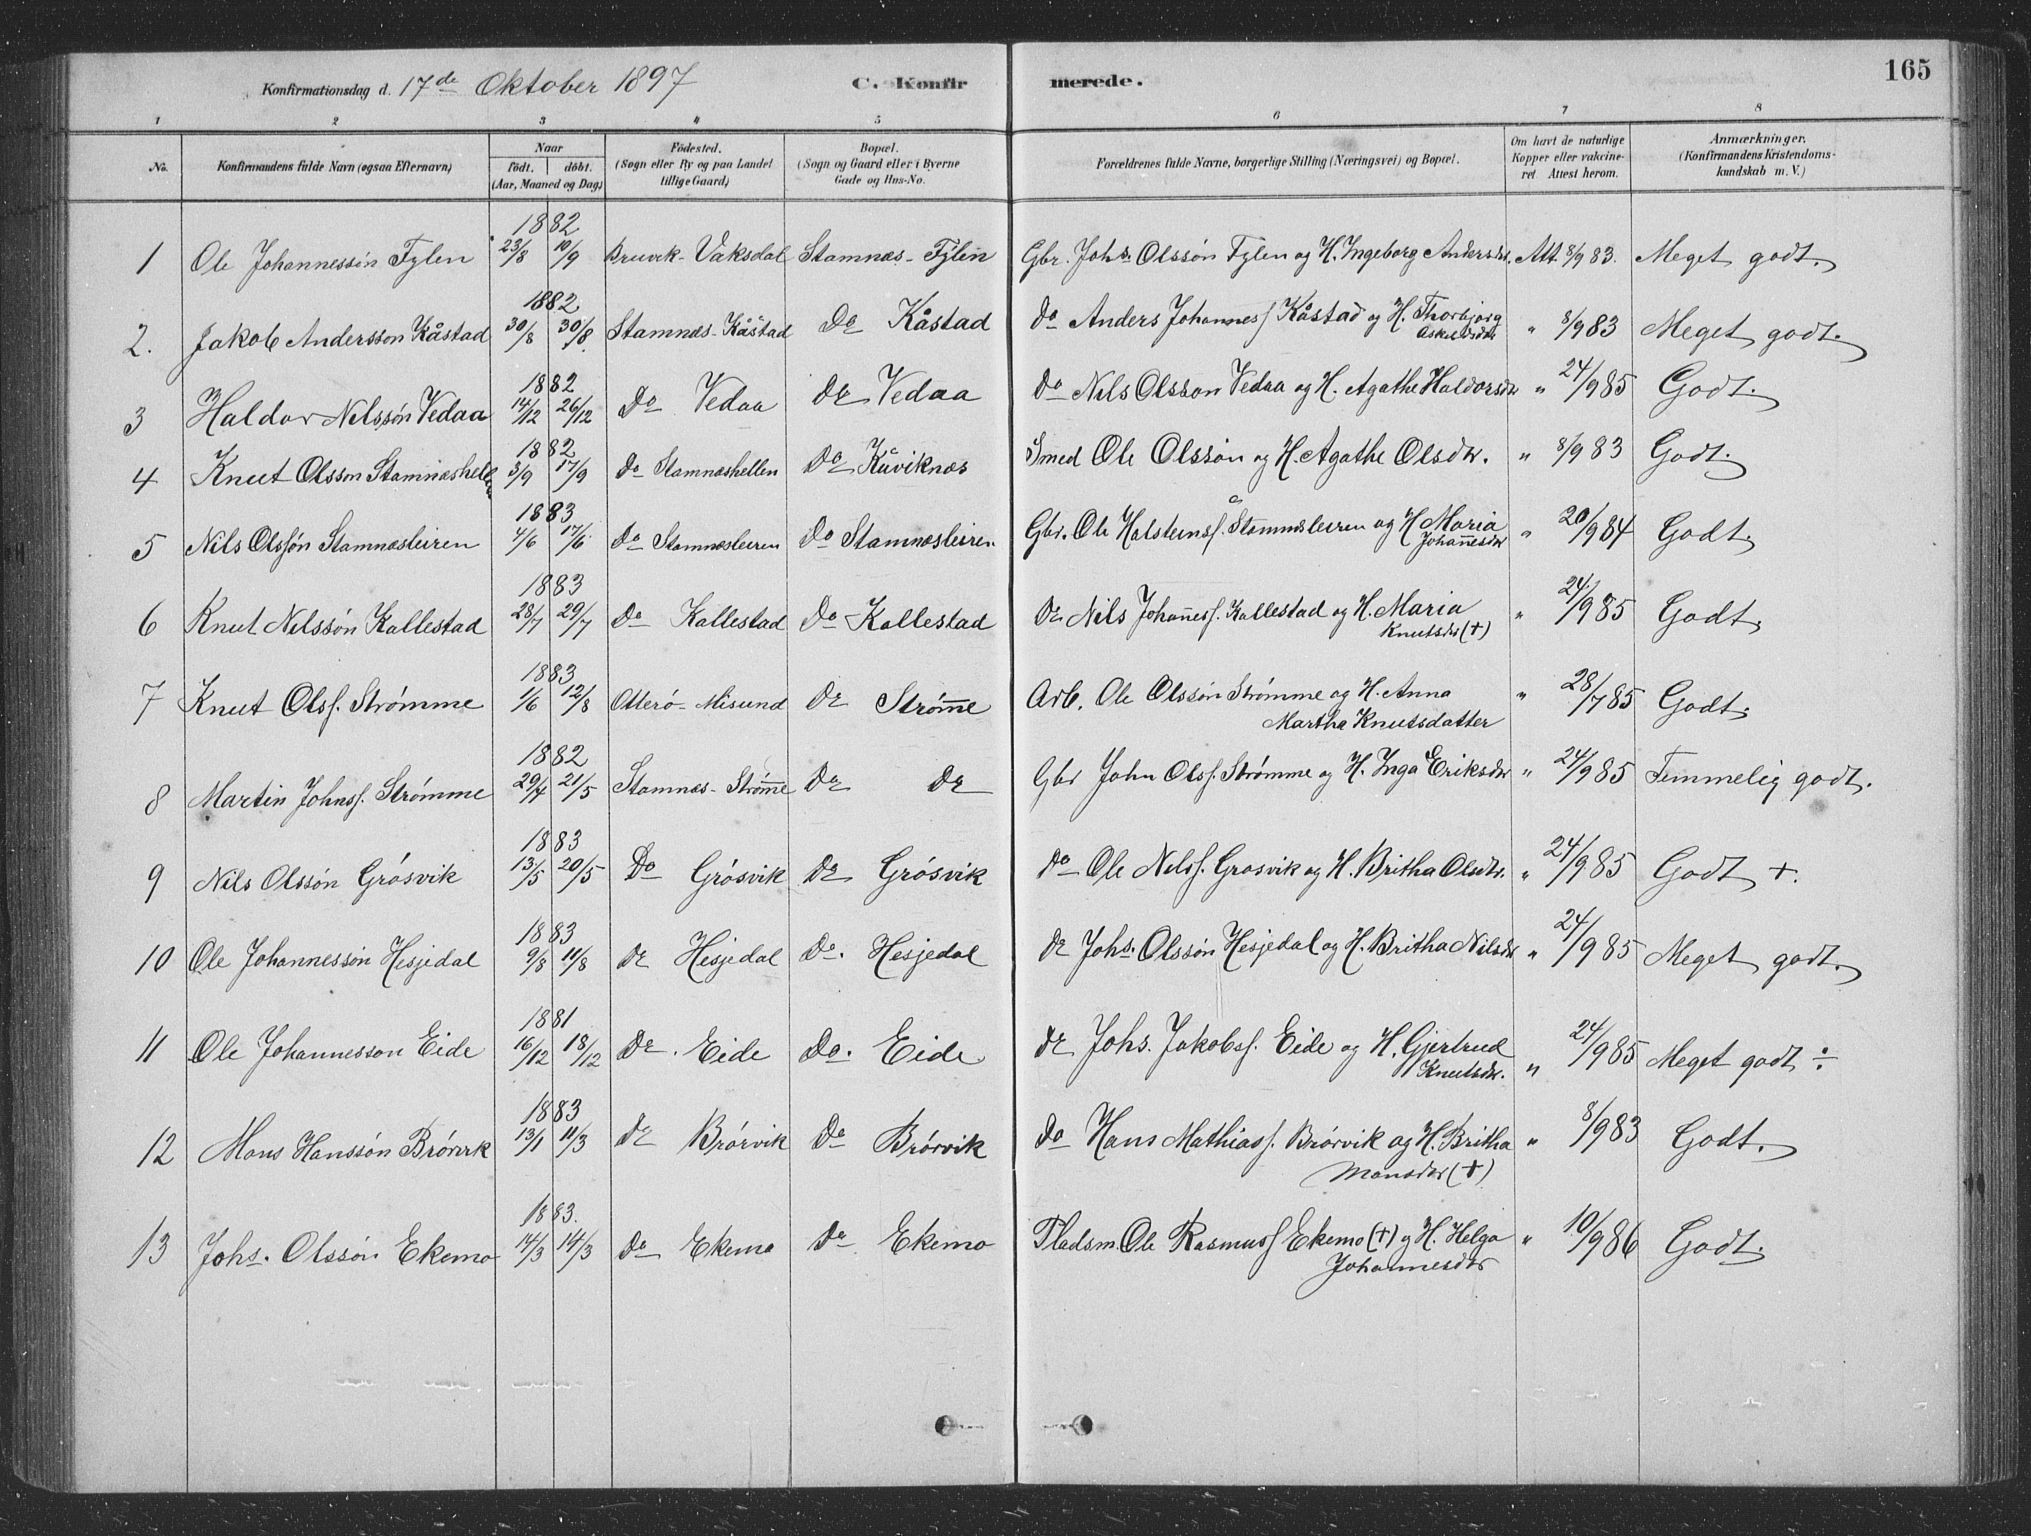 Konfirmationsdag d. 17de Oktober 1897 C. Konfirmerede. 165
1 2 3 4 5 6 7 8
No. Konfirmandens fulde Navn (ogsaa Efternavn) Naar Födt. döbt. (Aar, Maaned og Dag) Födested. (Sogn eller By og paa Landet tillige Gaard) Bopæl. (Sogn og Gaard eller i Byerne Gade og Hus-No. Forældrenes fulde Navne, borgerlige Stilling (Næringsvei) og Bopæl. Om havt de naturlige Kopper eller vakcineret. Attest herom. Anmærkninger. (Konfirmandens Kristendomskundskab m. V.)
1882
1 Ole Johannessön Fylen 23/8 10/9 Bruvik - Vaksdal Stamnæs - Fylen Gbr. Johs. Olssön Fylen og H. Ingeborg Andersdtr. Att. 8/9 83. Meget godt.
1882
2. Jakob Andersson Kåstad 30/8 30/8 Stamnæs - Kåstad Do Kåstad Do Anders Johannesf. Kåstad og H. Thorbjörg Askeldsdtr " 8/9 83 Meget godt.
1882
3 Haldor Nilssön Vedaa 14/12 26/12 Do Vedaa Do Vedaa Do Nils Olsson Vedaa og H. Agathe Haldorsdtr " 24/9 85 Godt.
1882
4 Knut Olsson Stamnæshellen 3/9 17/9 Do Stamnæshellen Do Kåviknæs Smed Ole Olssön og H. Agathe Olsdtr. " 8/9 83 Godt.
1883
5 Nils Olssön Stamnæsleiren 4/6 17/6 Do Stamnæsleiren Do Stamnæsleiren Gbr. Ole Halsteinsf. Stamnæsleiren og H. Maria Johannesdtr " 20/9 84 Godt.
1883
6 Knut Nilssön Kallestad 28/7 29/7 Do Kallestad Do Kallestad Do Nils Johannesf. Kallestad og H. Maria Knutsdtr (+) " 24/9 85 Godt.
1883
7 Knut Olsf. Strømme 1/6 12/8 Otterö - Misund Do Strømme Arb. Ole Olssön Strømme og H. Anna Martha Knutsdatter " 28/7 85 Godt.
1882
8 Martin Johnsf. Strømme 29/4 21/5 Stamnæs - Strømme Do Do Gbr John Olsf. Strømme og H. Inga Eriksdtr " 24/9 85 Temmelig godt.
1883
9 Nils Olssön Grösvik 13/5 20/5 Do Grösvik Do Grösvik Do Ole Nilsf. Grosvik og H. Britha Olsdtr. " 24/9 85 Godt +.
1883
10 Ole Johannessön Hesjedal 9/8 11/8 Do Hesjedal Do. Hesjedal Do Johs. Olssön Hesjedal og H. Britha Nilsdtr " 24/9 85 Meget godt.
1881
11 Ole Johannesson Eide 16/12 18/12 Do. Eide Do. Eide Do Johs. Jakobsf. Eide og H. Gjertrud Knutsdtr. " 24/9 85 Meget godt ÷
1883
12 Mons Hanssön Brörvik 13/1 11/3 Do Brörvik Do Brörvik Do Hans Mathiasf. Brörvik og H. Britha Monsdtr (+) " 8/9 83 Godt.
1883.
13 Johs. Olssön Ekemo 14/3 14/3 Do Ekemo Do Ekemo Pladsm. Ole Rasmusf Ekemo (+) og H. Helga Johannesdtr " 10/9 86 Godt.